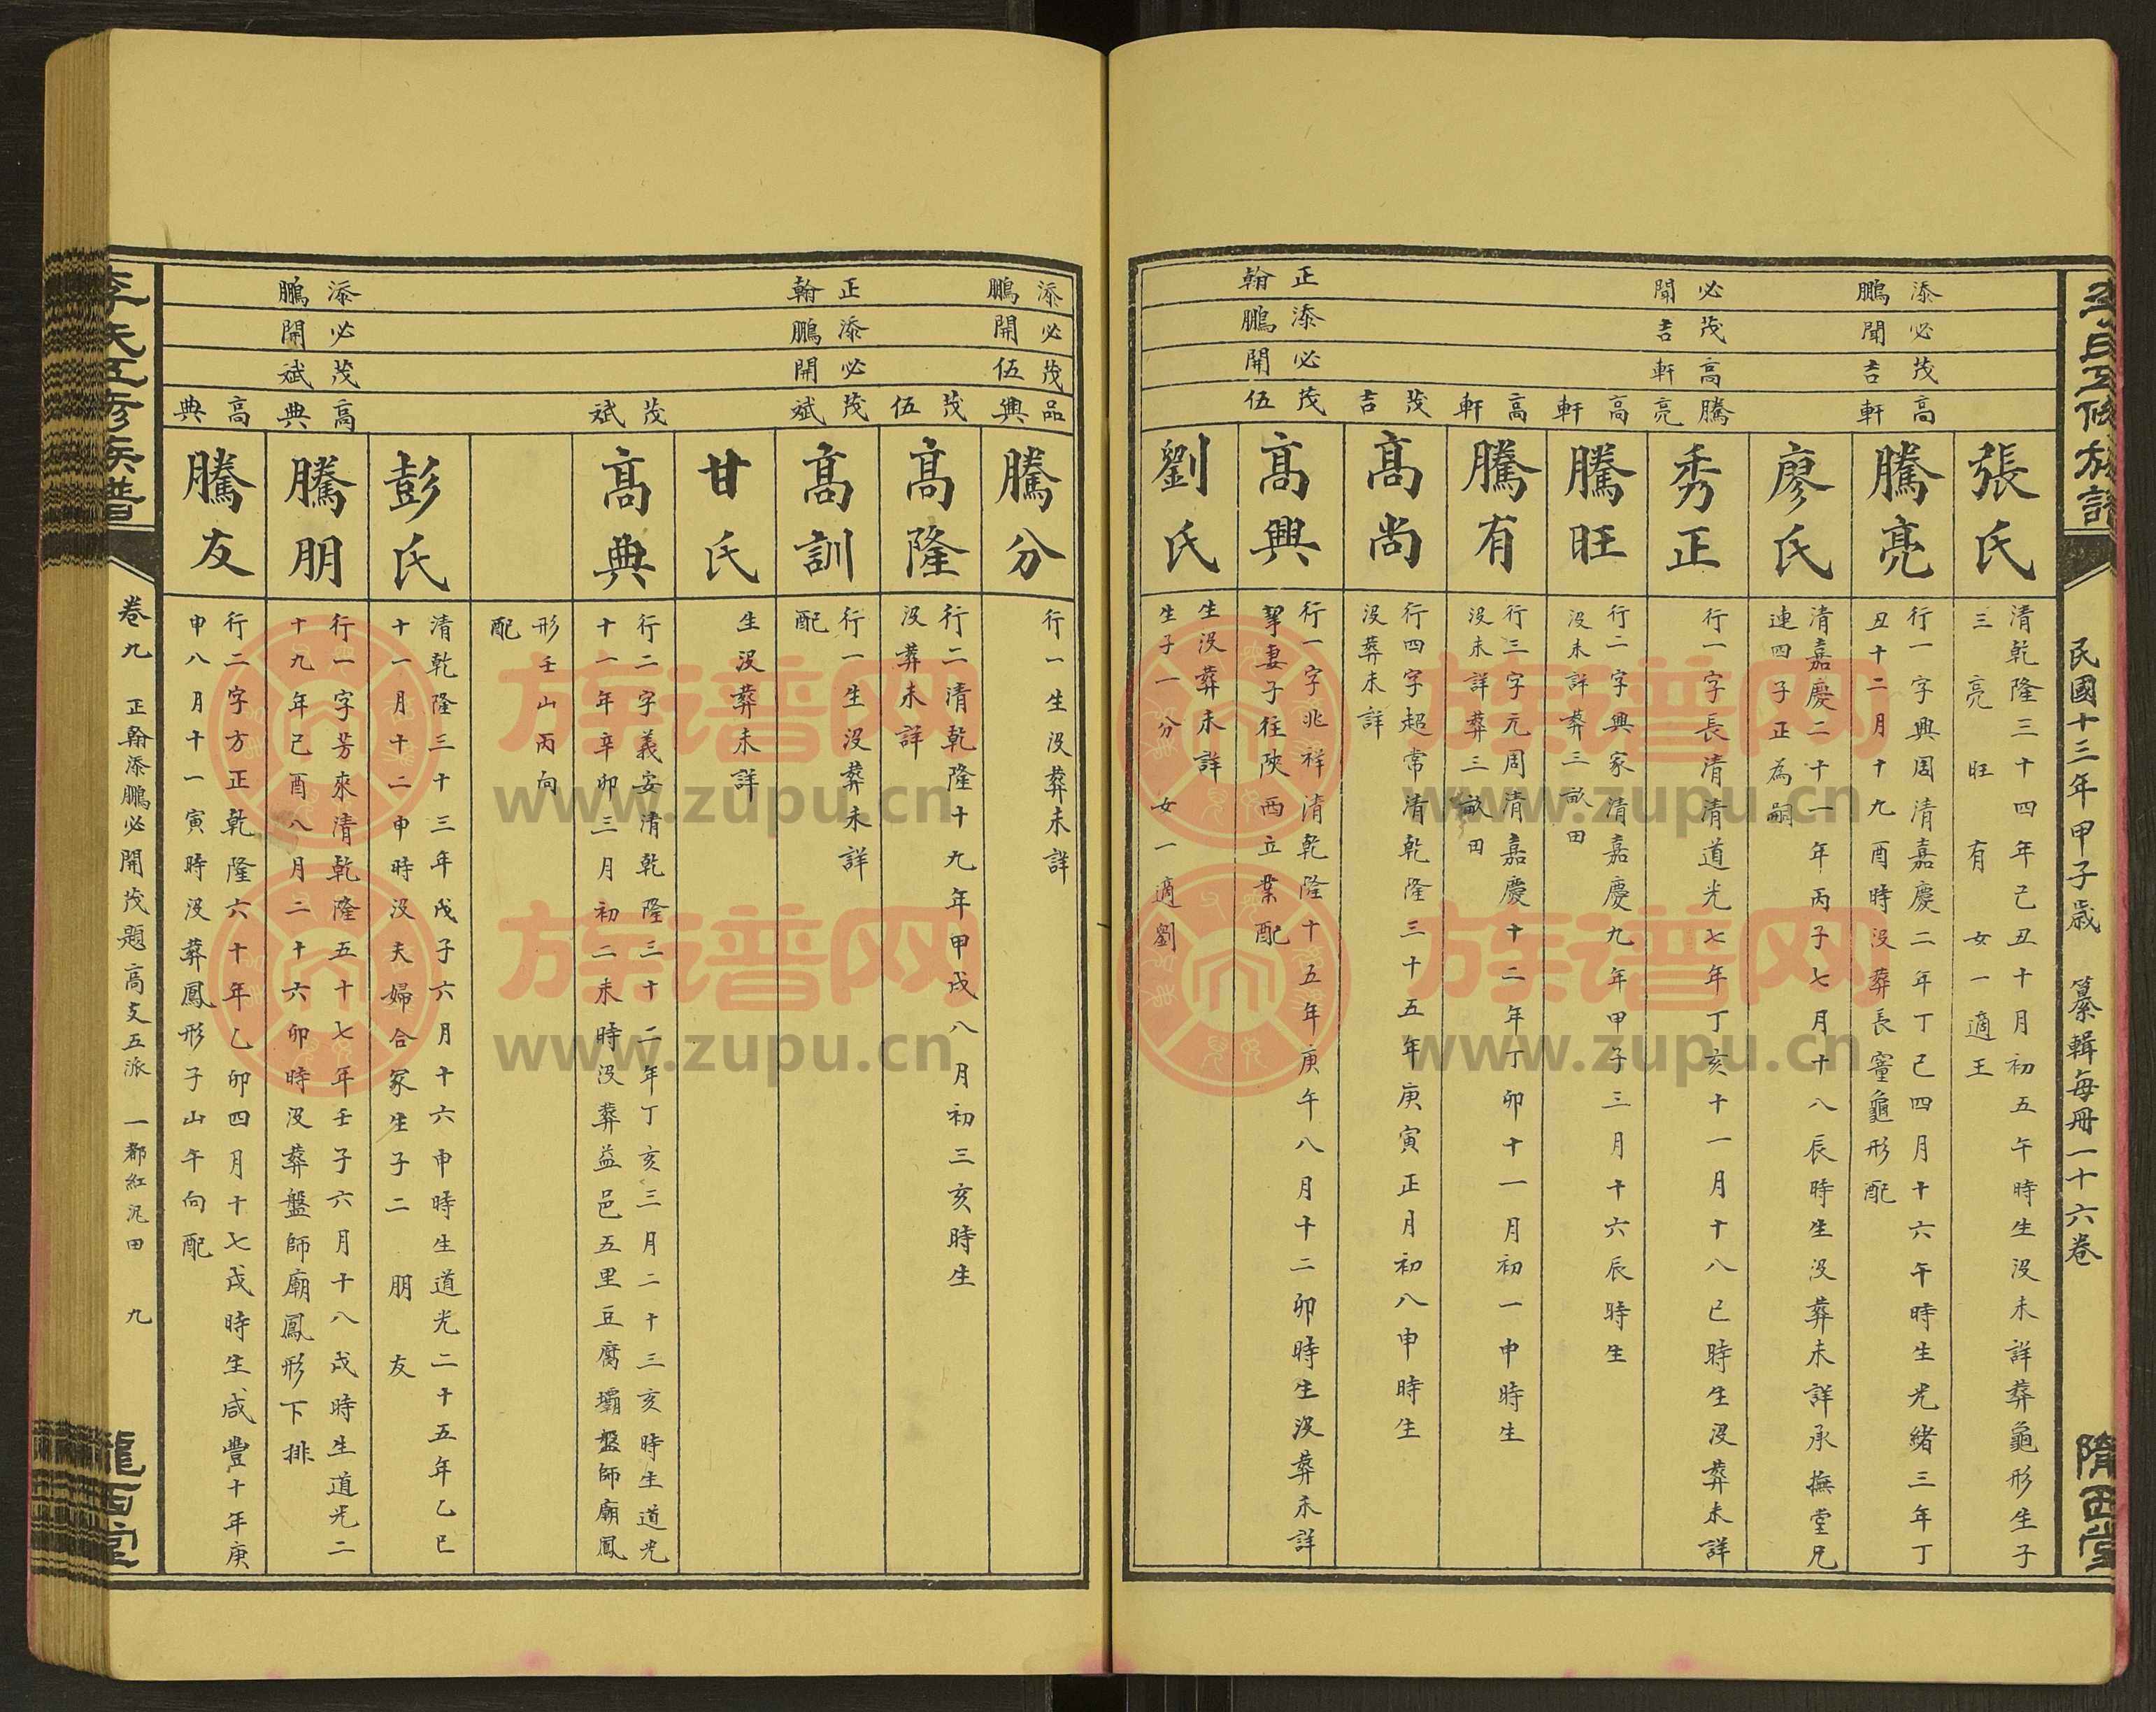 李氏五修族譜
民國十三年甲子歲 纂輯每冊一十六卷
隴西堂
張氏
清乾隆三十四年己丑十月初五午時生沒未詳葬龜形生子
三 亮 旺 有 女一適王
添鵬
必聞
茂吉
高軒
騰亮
行一字興周清嘉慶二年丁巳四月十六午時生光緒三年丁
丑十二月十九酉時沒葬長窰龜形配
廖氏
清嘉慶二十一年丙子七月十八辰時生沒葬未詳承撫堂兄
連四子正為嗣
必聞
茂吉
高軒
騰亮
秀正
行一字長清清道光七年丁亥十一月十八巳時生沒葬未詳
高軒
騰旺
行二字興家清嘉慶九年甲子三月十六辰時生
沒未詳葬三畝田
高軒
騰有
行三字元周清嘉慶十二年丁卯十一月初一申時生
沒未詳葬三畝田
茂吉
高尚
行四字超常清乾隆三十五年庚寅正月初八申時生
沒葬未詳
正翰
添鵬
必開
茂伍
高興
行一字兆祥清乾隆十五年庚午八月十二卯時生沒葬未詳
挈妻子往陝西立業配
劉氏
生沒葬未詳
生子一 分 女一適劉
添鵬
必開
茂伍
品興
騰分
行一生沒葬未詳
茂伍
高隆
行二清乾隆十九年甲戌八月初三亥時生
沒葬未詳
正翰
添鵬
必開
茂斌
高訓
行一生沒葬未詳
配
甘氏
生沒葬未詳
茂斌
高典
行二字義安清乾隆三十二年丁亥三月二十三亥時生道光
十一年辛卯三月初二未時沒葬益邑五里豆腐壩盤師廟鳳
形壬山丙向
配
彭氏
清乾隆三十三年戊子六月十六申時生道光二十五年乙巳
十一月十二申時沒夫婦合冢生子二 朋 友
添鵬
必開
茂斌
高典
騰朋
行一字芳來清乾隆五十七年壬子六月十八戌時生道光二
十九年己酉八月二十六卯時沒葬盤師廟鳳形下排
高典
騰友
行二字方正乾隆六十年乙卯四月十七戌時生咸豐十年庚
申八月十一寅時沒葬鳳形子山午向配
李氏五修族譜
卷九 正翰添鵬必開茂題高支五派 一都紅泥田 九
隴西堂
族谱网
www.zupu.cn
族谱网
www.zupu.cn
族谱网
www.zupu.cn
族谱网
www.zupu.cn